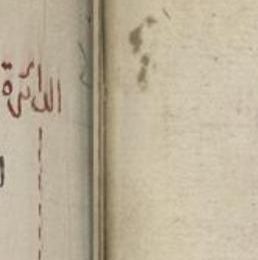 الدائرة